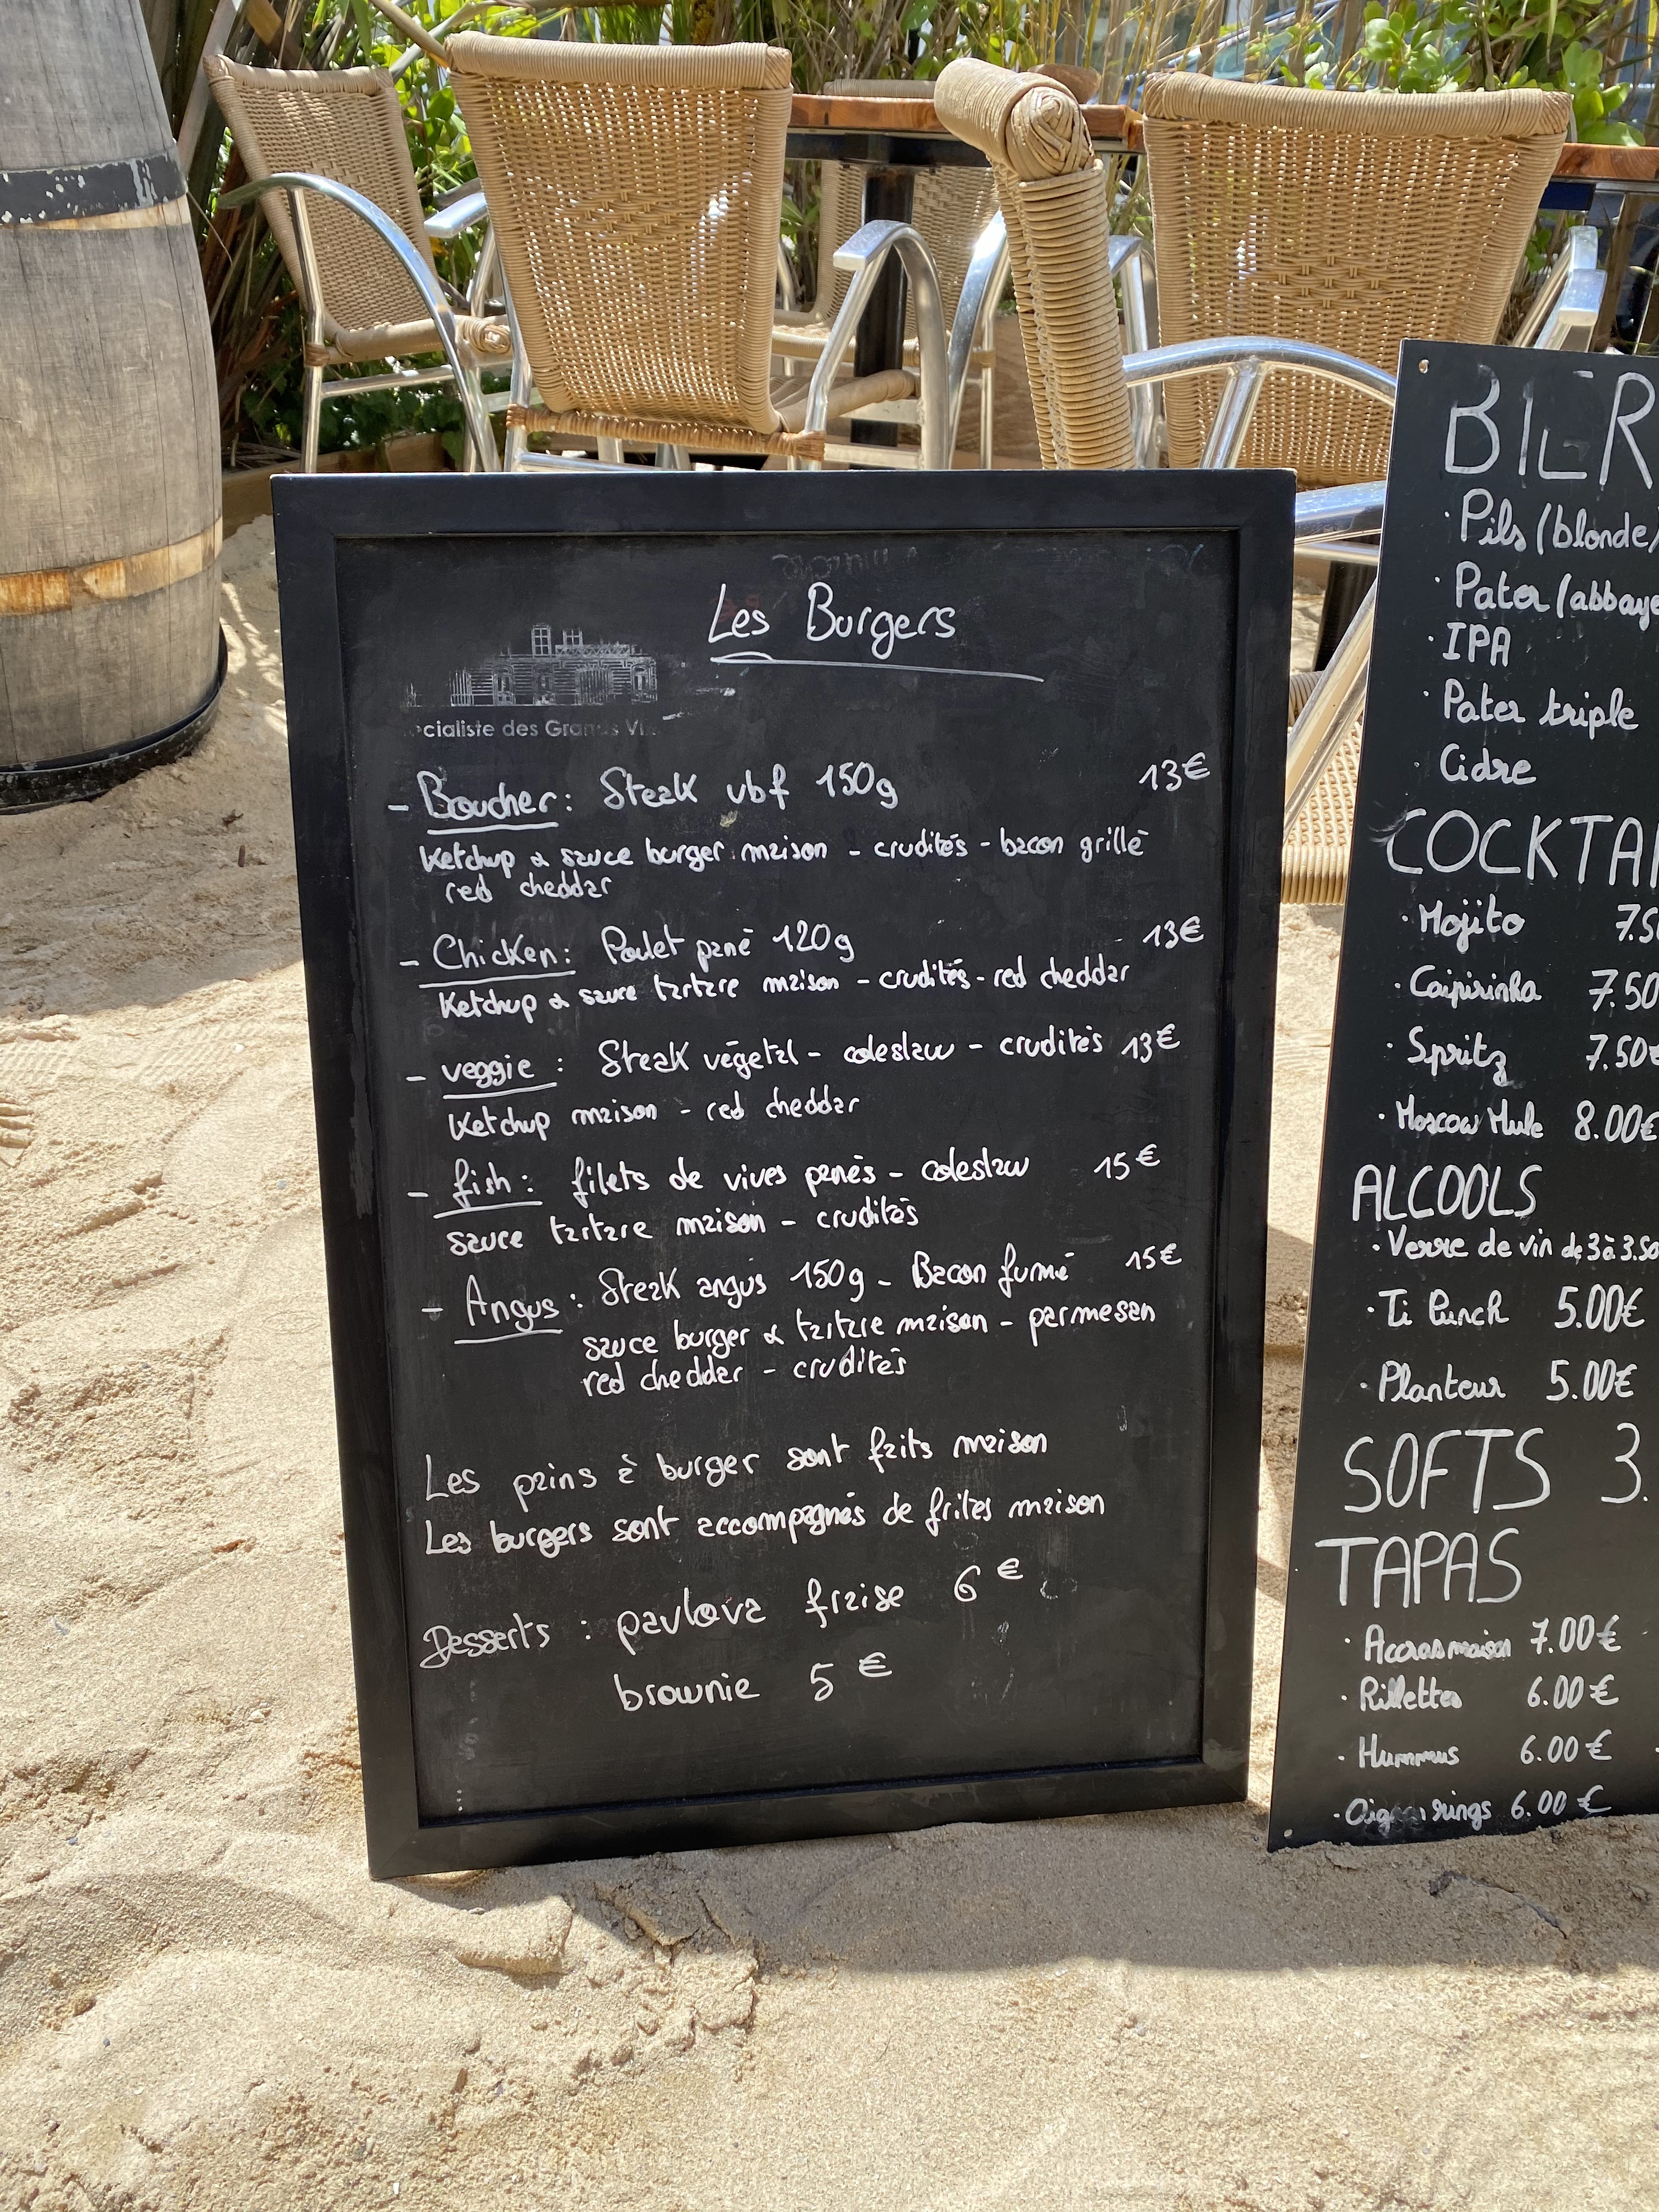 Les Burgers
cialiste des Gran s Vi
- Boucher : Steak vbf 150g 13€
Ketchup & sauce burger maison - crudités - bacon grillé
red cheddar
- Chicken : Poulet pané 120g 13€
Ketchup & sauce tartare maison - crudités - red cheddar
- veggie : Steak végétal - coleslaw - crudités 13€
Ketchup maison - red cheddar
- fish : filets de vives panés - coleslaw 15€
sauce tartare maison - crudités
- Angus : Steak angus 150g - Bacon fumé 15€
sauce burger & tartare maison - parmesan
red cheddar - crudités
Les pains à burger sont faits maison
Les burgers sont accompagnés de frites maison
Desserts : pavlova fraise 6€
brownie 5€
BIER
· Pils (blonde)
· Pater (abbaye
· IPA
· Pater triple
· Cidre
COCKTA
· Mojito 7.5
· Caipirinha 7.50
· Spritz 7.50€
· Moscow Mule 8.00€
ALCOOLS
· Verre de vin de 3 à 3.50
· Ti Punch 5.00€
· Planteur 5.00€
SOFTS 3.
TAPAS
· Accras maison 7.00€
· Rillettes 6.00€
· Hummus 6.00€
· rings 6.00€